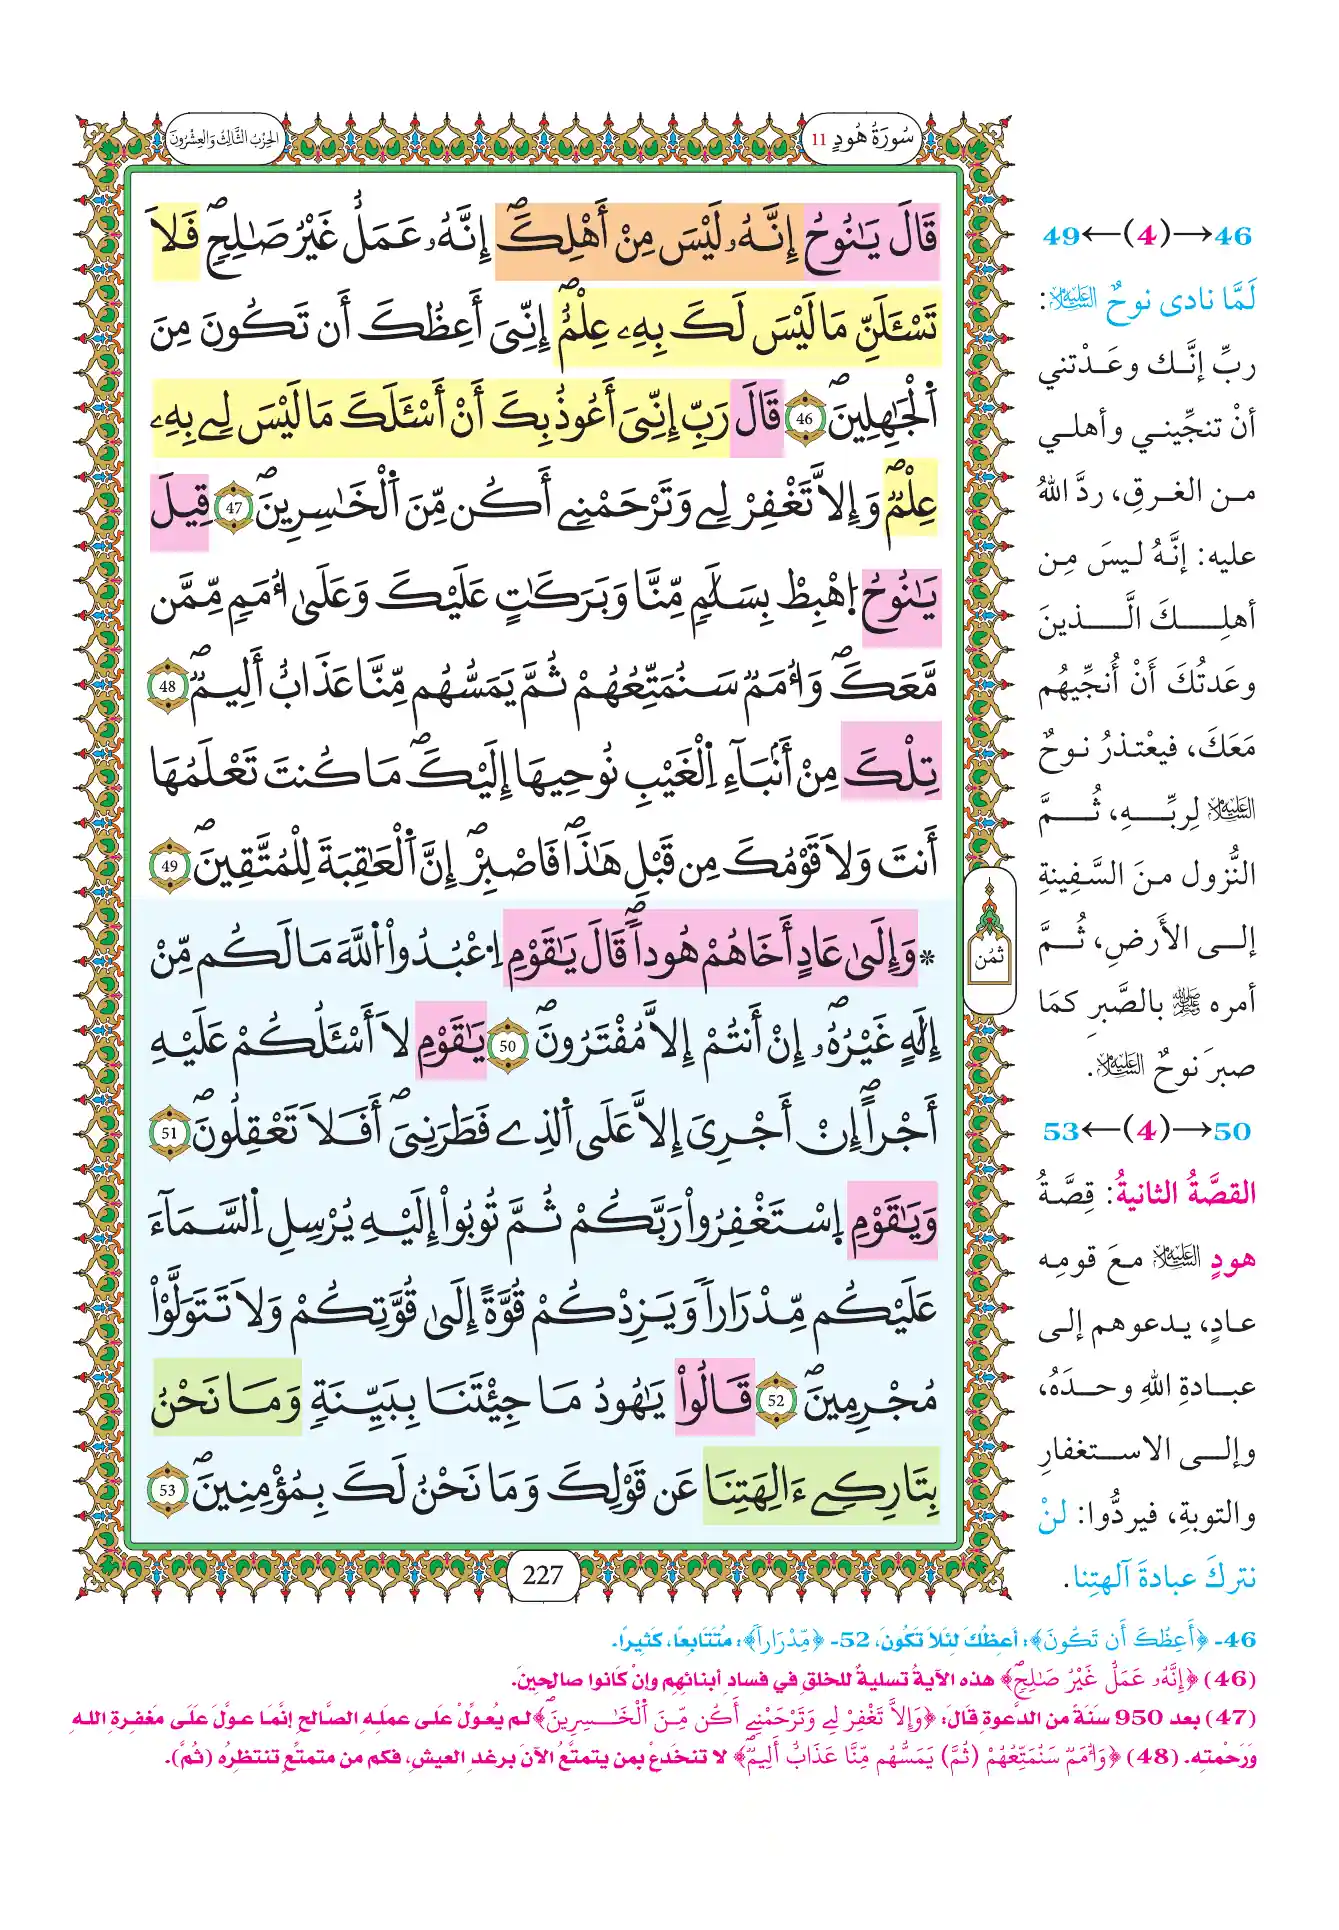 سُورَةُ هُودٍ 11
الحِزْبُ الثَّالِثُ وَالعِشْرُونَ
قَالَ يَٰنُوحُ إِنَّهُۥ لَيْسَ مِنْ أَهْلِكَۖ إِنَّهُۥ عَمَلٌ غَيْرُ صَٰلِحٖۖ فَلَا
تَسْـَٔلَنِّ مَا لَيْسَ لَكَ بِهِۦ عِلْمٌۖ إِنِّيَ أَعِظُكَ أَن تَكُونَ مِنَ
اَ۬لْجَٰهِلِينَۖ 46 قَالَ رَبِّ إِنِّيَ أَعُوذُ بِكَ أَنْ أَسْـَٔلَكَ مَا لَيْسَ لِے بِهِۦ
عِلْمٞۖ وَإِلَّا تَغْفِرْ لِے وَتَرْحَمْنِےٓ أَكُن مِّنَ اَ۬لْخَٰسِرِينَۖ 47 قِيلَ
يَٰنُوحُ اُ۪هْبِطْ بِسَلَٰمٖ مِّنَّا وَبَرَكَٰتٍ عَلَيْكَ وَعَلَىٰٓ أُمَمٖ مِّمَّن
مَّعَكَۖ وَأُمَمٞ سَنُمَتِّعُهُمْ ثُمَّ يَمَسُّهُم مِّنَّا عَذَابٌ أَلِيمٞۖ 48
تِلْكَ مِنْ أَنۢبَآءِ اِ۬لْغَيْبِ نُوحِيهَآ إِلَيْكَۖ مَا كُنتَ تَعْلَمُهَآ
أَنتَ وَلَا قَوْمُكَ مِن قَبْلِ هَٰذَاۖ فَاصْبِرْۖ إِنَّ اَ۬لْعَٰقِبَةَ لِلْمُتَّقِينَۖ 49
* وَإِلَىٰ عَادٍ أَخَاهُمْ هُوداٗۖ قَالَ يَٰقَوْمِ اِ۟عْبُدُواْ اُ۬للَّهَ مَا لَكُم مِّنْ
إِلَٰهٍ غَيْرُهُۥٓۖ إِنْ أَنتُمْ إِلَّا مُفْتَرُونَۖ 50 يَٰقَوْمِ لَآ أَسْـَٔلُكُمْ عَلَيْهِ
أَجْراًۖ إِنْ أَجْرِيَ إِلَّا عَلَى اَ۬لذِے فَطَرَنِيَۖ أَفَلَا تَعْقِلُونَۖ 51
وَيَٰقَوْمِ اِ۪سْتَغْفِرُواْ رَبَّكُمْ ثُمَّ تُوبُوٓاْ إِلَيْهِ يُرْسِلِ اِ۬لسَّمَآءَ
عَلَيْكُم مِّدْرَاراٗ وَيَزِدْكُمْ قُوَّةً إِلَىٰ قُوَّتِكُمْ وَلَا تَتَوَلَّوْاْ
مُجْرِمِينَۖ 52 قَالُواْ يَٰهُودُ مَا جِئْتَنَا بِبَيِّنَةٖ وَمَا نَحْنُ
بِتَارِكِےٓ ءَالِهَتِنَا عَن قَوْلِكَ وَمَا نَحْنُ لَكَ بِمُؤْمِنِينَۖ 53
ثُمُن
227
46→(4)←49
لَمَّا نادى نوحٌ عليه السلام:
ربِّ إنَّك وعَدْتني
أنْ تنجِّيني وأهلي
من الغرقِ، ردَّ اللهُ
عليه: إنَّهُ ليسَ مِن
أهلِكَ الَّذينَ
وعَدتُكَ أَنْ أُنجِّيهُم
مَعَكَ، فيعْتذرُ نوحٌ
عليه السلام لِربِّهِ، ثُمَّ
النُّزول منَ السَّفِينةِ
إلى الأَرضِ، ثُمَّ
أمره ﷺ بالصَّبرِ كمَا
صبرَ نوحٌ عليه السلام.
50→(4)←53
القصَّةُ الثانيةُ: قِصَّةُ
هودٍ عليه السلام معَ قومِه
عادٍ، يدعوهم إلى
عبادةِ اللهِ وحدَهُ،
وإلى الاستغفارِ
والتوبةِ، فيردُّوا: لنْ
نتركَ عبادةَ آلهتِنا.
46- ﴿أَعِظُكَ أَن تَكُونَ﴾: أعِظُكَ لئلا تَكُونَ، 52- ﴿مِّدْرَاراٗ﴾: مُتَتَابِعًا، كَثِيرًا.
(46) ﴿إِنَّهُۥ عَمَلٌ غَيْرُ صَٰلِحٖۖ﴾ هذه الآيةُ تسليةٌ للخلقِ في فسادِ أبنائهِم وإنْ كَانوا صالحِينَ.
(47) بعد 950 سنَةً من الدَّعوةِ قَالَ: ﴿وَإِلَّا تَغْفِرْ لِے وَتَرْحَمْنِےٓ أَكُن مِّنَ اَ۬لْخَٰسِرِينَۖ﴾ لم يُعوِّلْ على عملِهِ الصَّالحِ إنَّمَا عوَّلَ عَلَى مغفرةِ اللهِ
وَرَحْمتِه. (48) ﴿وَأُمَمٞ سَنُمَتِّعُهُمْ (ثُمَّ) يَمَسُّهُم مِّنَّا عَذَابٌ أَلِيمٞۖ﴾ لا تنخَدعْ بمن يتمتَّعُ الآنَ برغدِ العيشِ، فكم من متمتِّعٍ تنتظرُه (ثُمَّ).